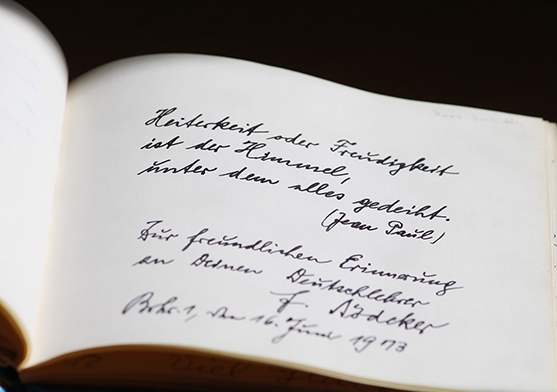 Heiterkeit oder Freudigkeit
ist der Himmel,
unter dem alles gedeiht.
(Jean Paul)
Zur freundlichen Erinnerung
an Deinen Deutschlehrer
F. Bödeker
den 16. Juni 1973
Viel